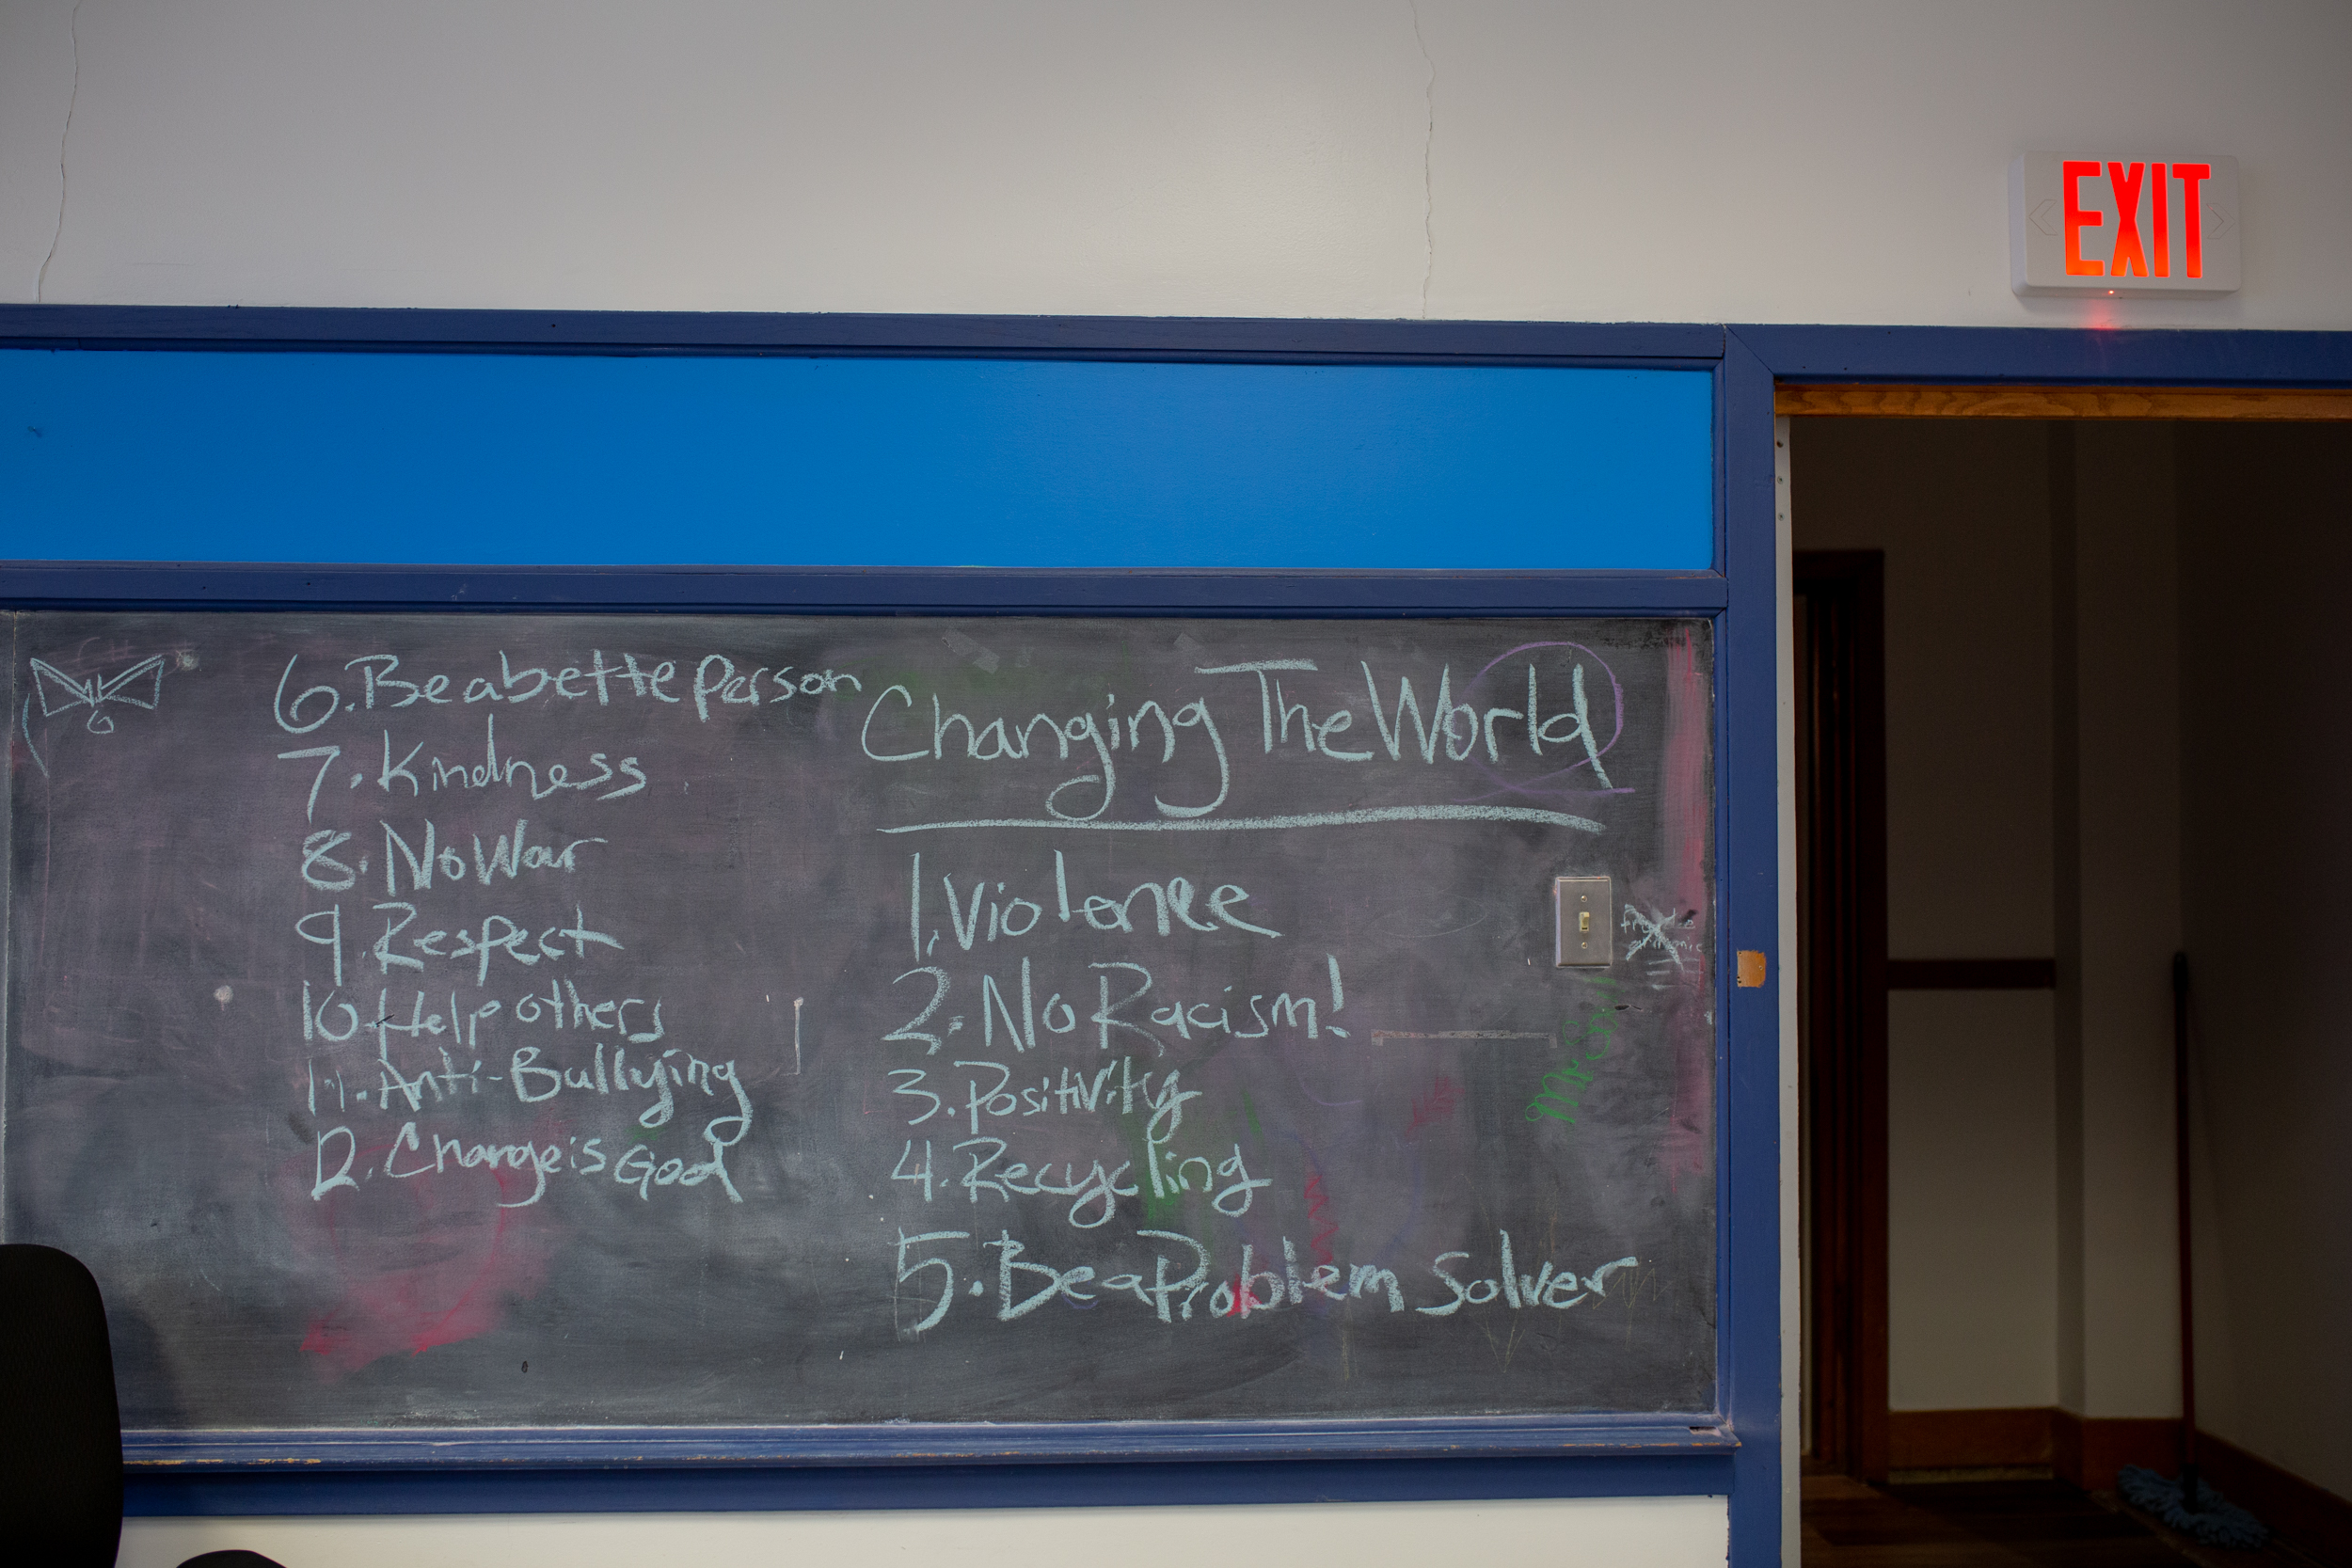 EXIT
Changing The World
1. Violence
2. No Racism!
3. Positivity
4. Recycling
5. Be a Problem Solver
6. Be a bette person
7. Kindness
8. No War
9. Respect
10. Help others
11. Anti-Bullying
12. Change is Good